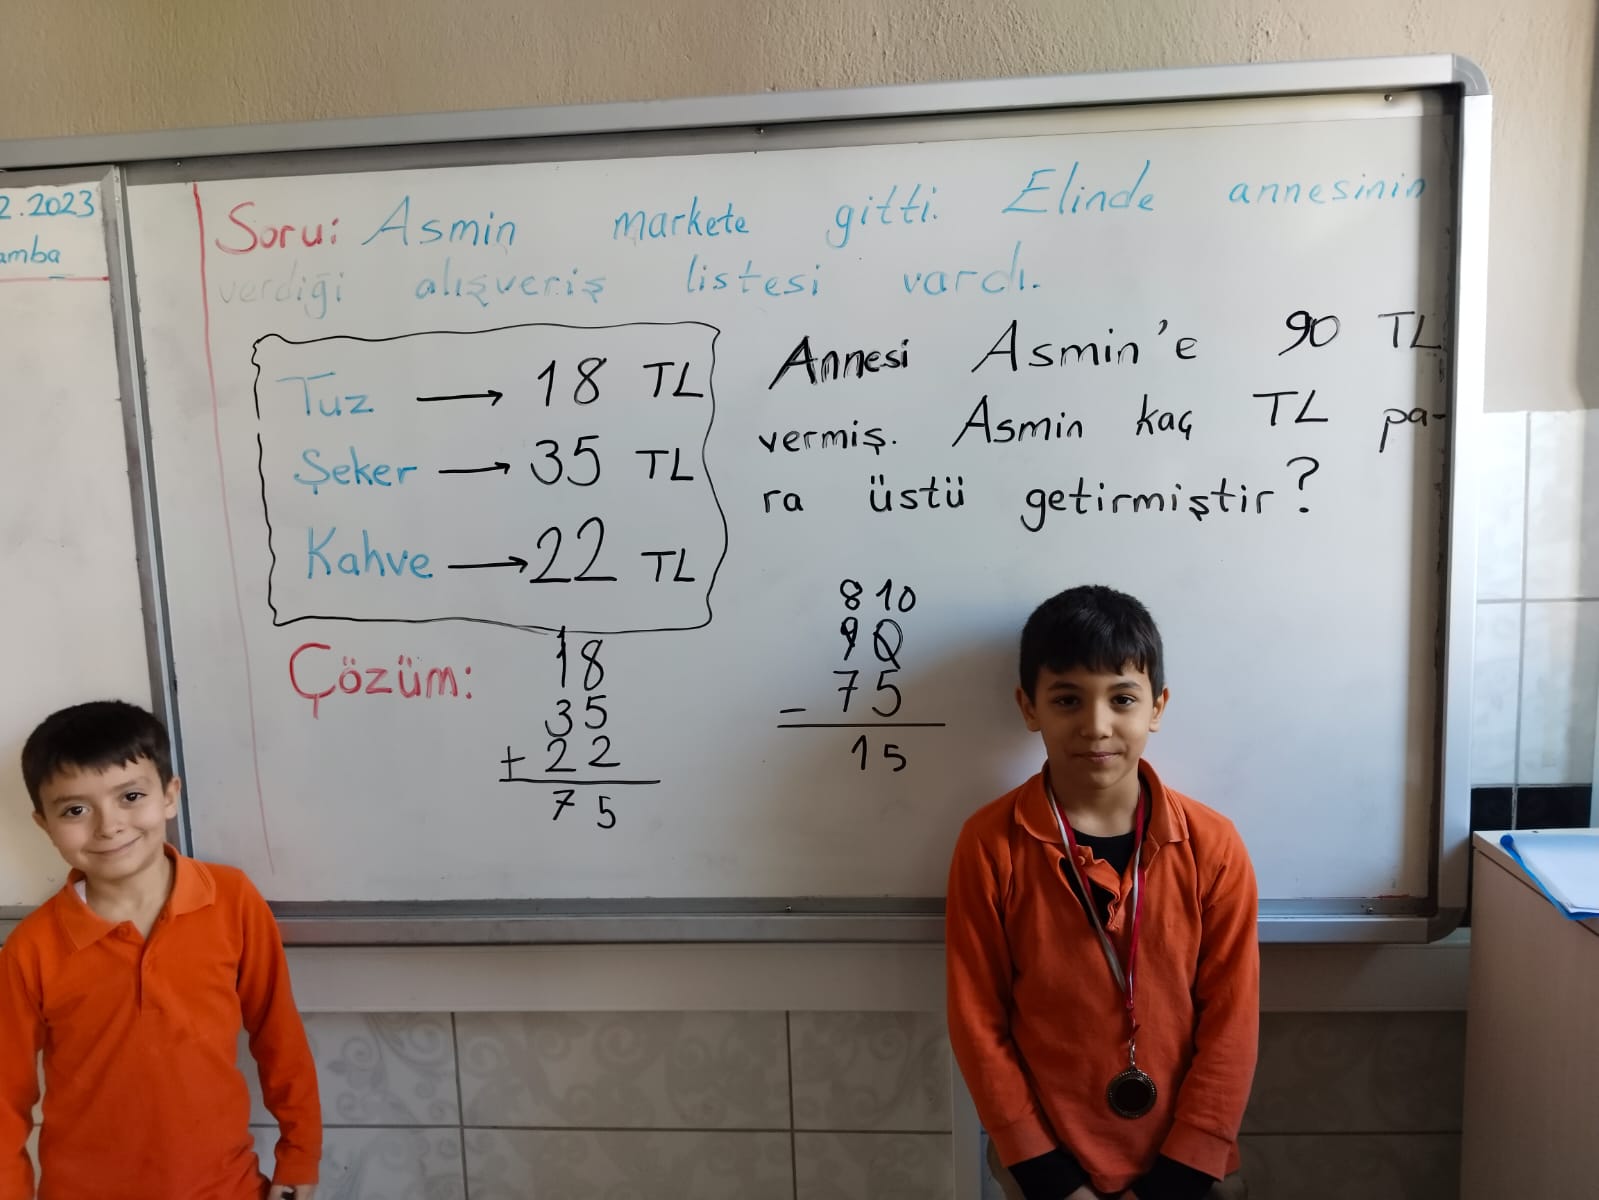 2.2023
amba
Soru: Asmin markete gitti. Elinde annesinin
verdiği alışveriş listesi vardı.
Tuz → 18 TL
Şeker → 35 TL
Kahve → 22 TL
Annesi Asmin'e 90 TL
vermiş. Asmin kaç TL pa-
ra üstü getirmiştir?
Çözüm:
18
35
+ 22
75
8 10
90
- 75
15